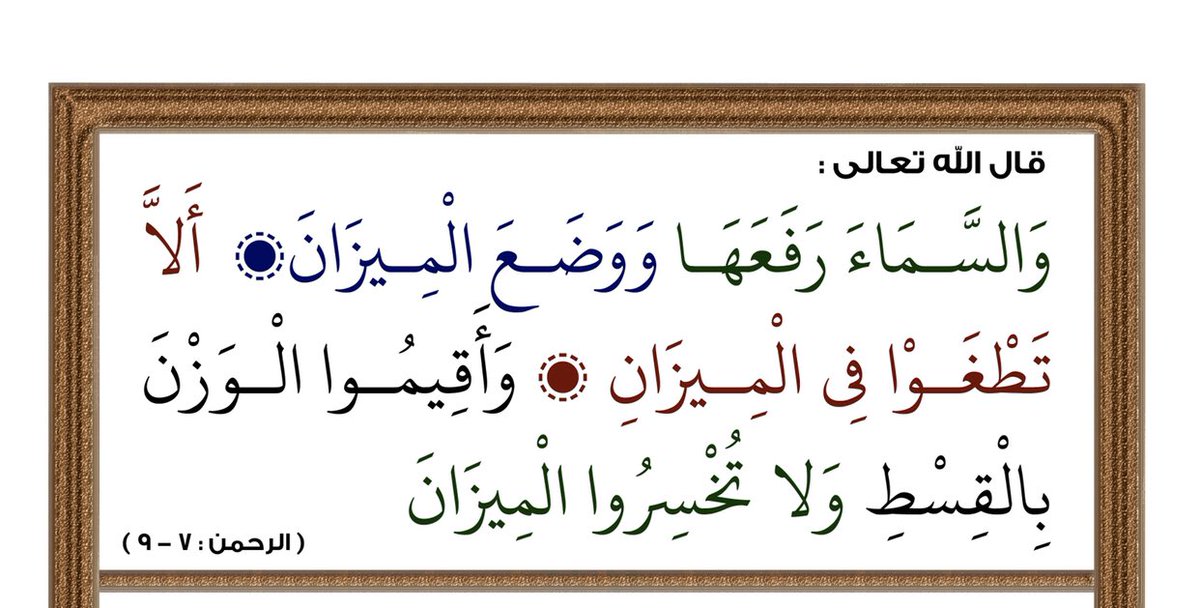 قال الله تعالى :
وَالسَّـمَاءَ رَفَعَهَـا وَوَضَـعَ الْمِـيزَانَ ۝ أَلاَّ
تَطْغَـوْا فِى الْمِـيزَانِ ۝ وَأَقِيمُـوا الْـوَزْنَ
بِالْقِسْطِ وَلا تُخْسِرُوا الْمِيزَانَ
( الرحمن : ٧ - ٩ )